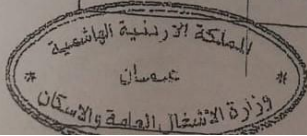 المملكة الأردنية الهاشمية
عمان
وزارة الأشغال العامة والاسكان